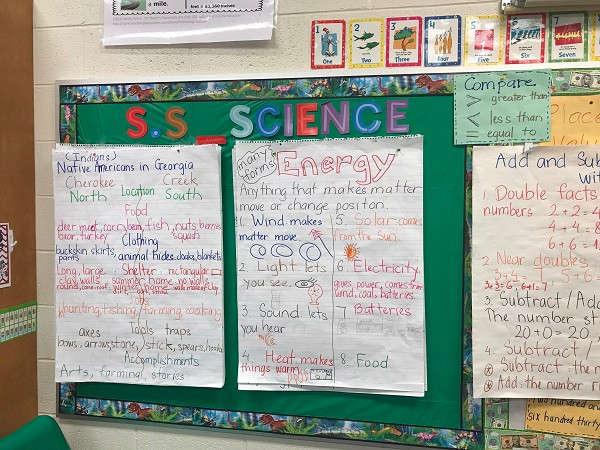 a mile.
feet = 63,360 inches
1 One
2 Two
3 Three
4 Four
5 Five
6 Six
7 Seven
S.S_SCIENCE
Compare
> greater than
< less than
= equal to
(Indians)
Native Americans in Georgia
Cherokee Creek
North Location South
Food
deer meat, corn, bean, fish, nuts, berries
bear, turkey squash
Clothing
buckskin skirts, animal hides, cloaks, blankets
pants
Long, large Shelter rectangular
clay walls summer home no walls
round, winter home
hunting, fishing, farming, cooking
Tools
axes traps
bows, arrows, stone, stick, spears, hooks
Accomplishments
Arts, farming, stories
many forms
Energy
Anything that makes matter
move or change positon.
1. Wind makes
matter move.
2. Light lets
you see.
3. Sound lets
you hear
4. Heat makes
things warm
5. Solar-comes
from the sun.
6. Electricity
gives power, comes from
wind, coal, batteries.
7 Batteries
8. Food
Place
Add and Sub
wit
1. Double facts
numbers 2+2=4
4+4=8
6+6=1
2. Near doubles
3+4=7 5+6=
3+3=6, 6+1=7
3. Subtract / Add
The number st
20+0=20,
4. Subtract /
Subtract the
Add the number
Two hundred an
six hundred thirty